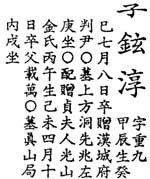 子鉉淳
字重九
甲辰生癸
巳七月八日卒贈漢城府
判尹○墓上方洞先兆左
庚坐○配贈貞夫人光山
金氏丙午生己未四月十
日卒父載萬○墓眞山局
內戌坐